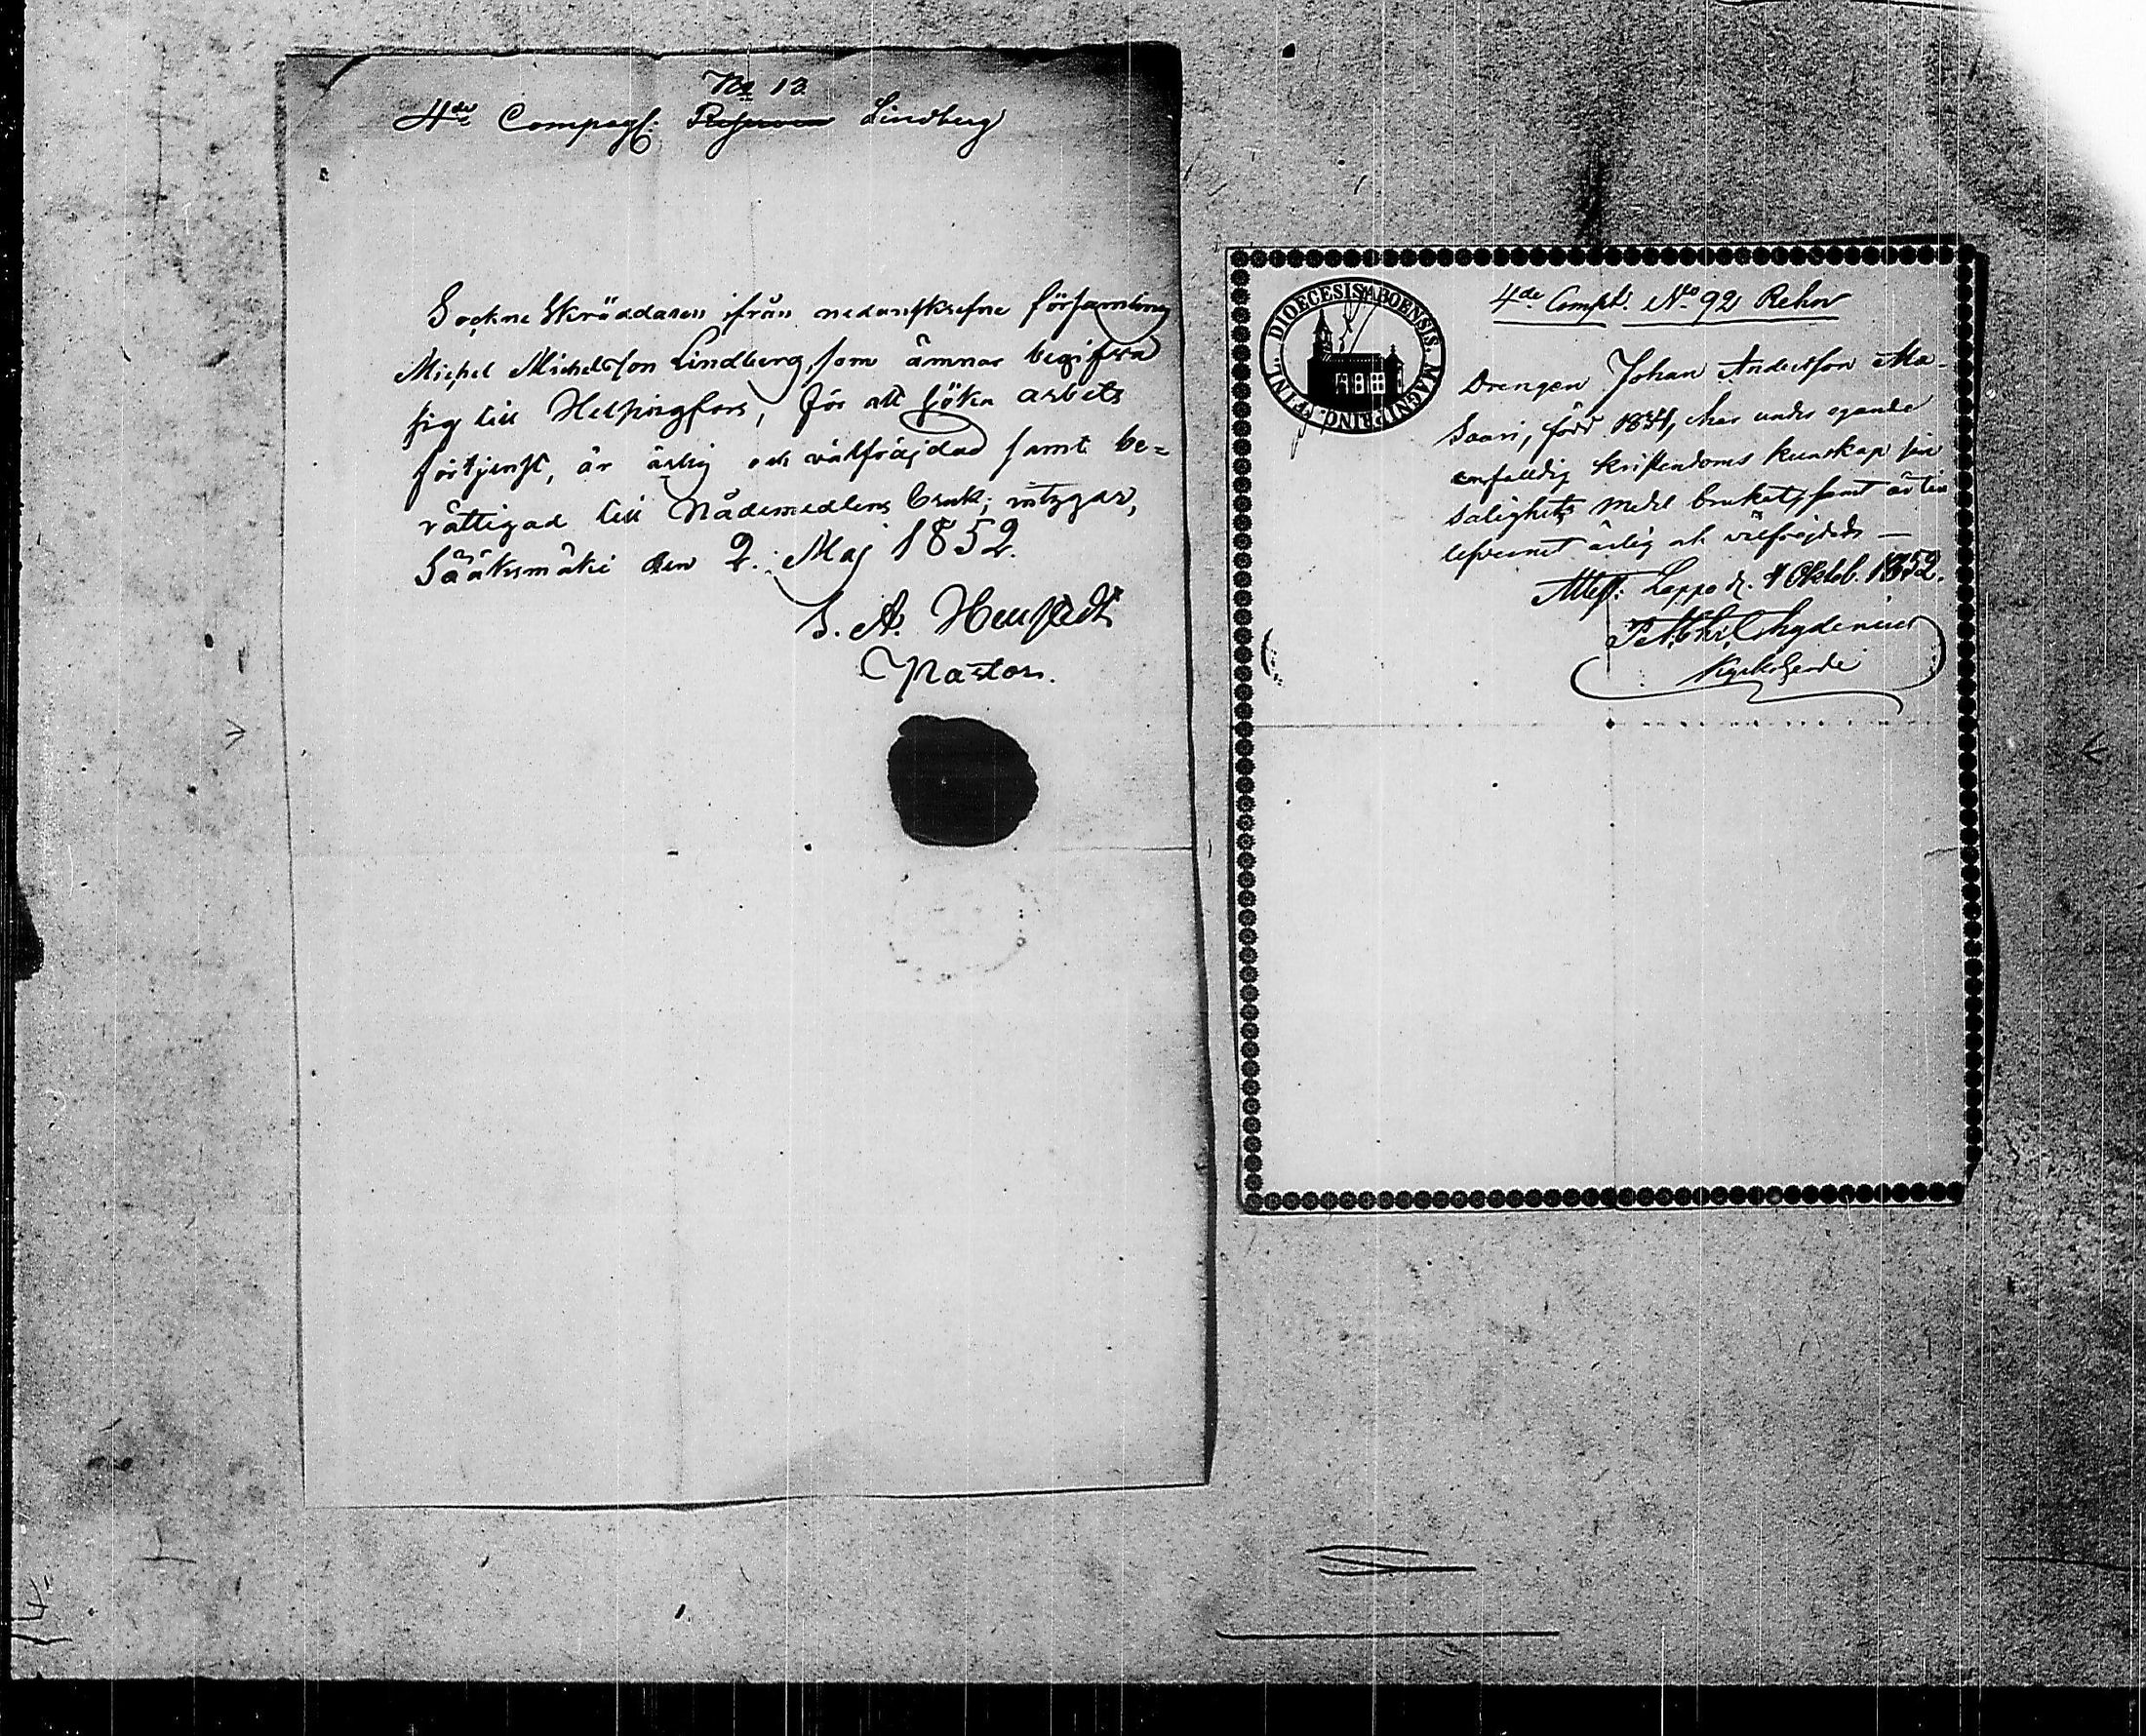 No 13.
4de Compagf: Reserven Lindberg
Sockne Skräddaren ifrån nedanskrefne församling
Michel Michelsson Lindberg, som ämnar begifva
sig till Helsingfors, för att söka arbets
förtjenst, är ärlig och välfräjdad samt be=
rättigad till Nådemedlens bruk; intygar,
Sääksmäki den 2. Maj 1852.
S. A.
Pastor.
DIOECESIS ABOENSIS. MAGNI PRINC. FINL.
4de Comp. No 92 Rehn
Drengen Johan Andersson Ma-
saari, född 1834, har under egande
enfaldig kristendoms kunskap sin
salighets medel brukat, samt är till
lefvernet ärlig och välfrejdad —
Attest. Lappo d. 4 Oktob. 1852.
Kyrkoherde